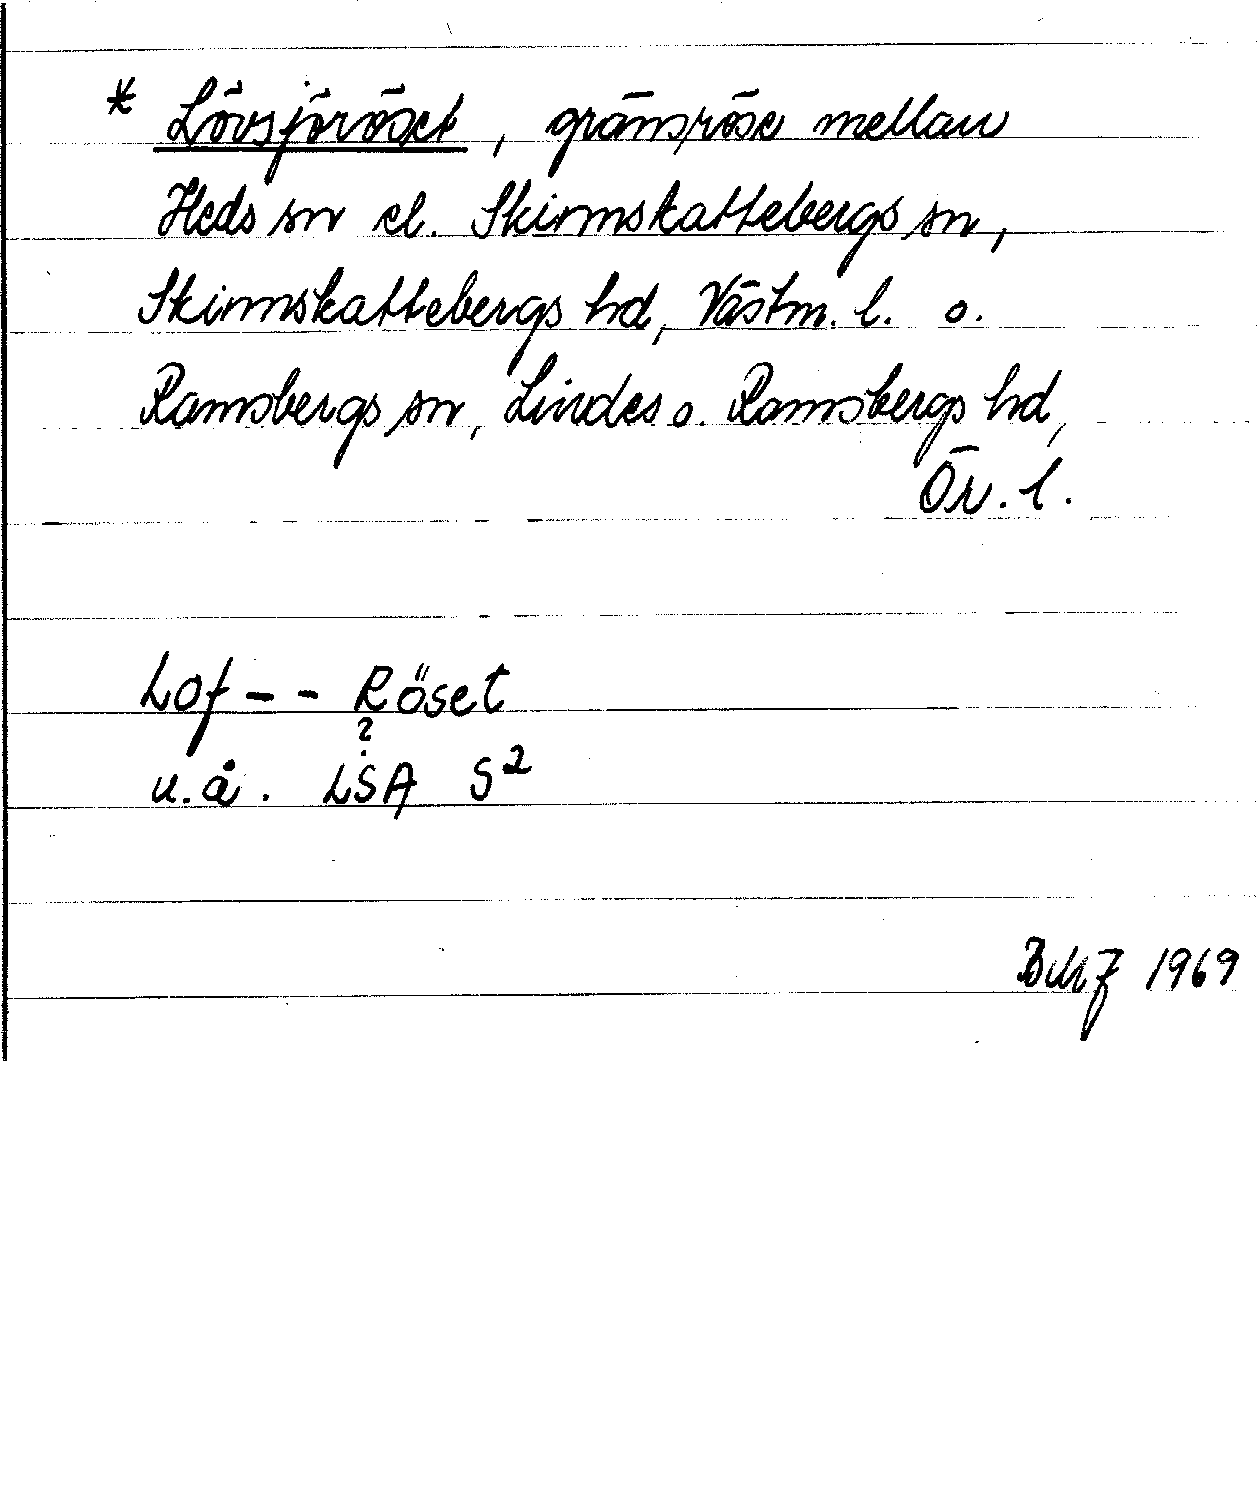 * Lövsjöröset, gränsröse mellan
Heds sn el. Skinnskattebergs sn,
Skinnskattebergs hd, Västm. l. o.
Ramsbergs sn, Lindes o. Ramsbergs hd,
Ör. l.
Lof - - Röset
?
u.å. LSA S2
1969